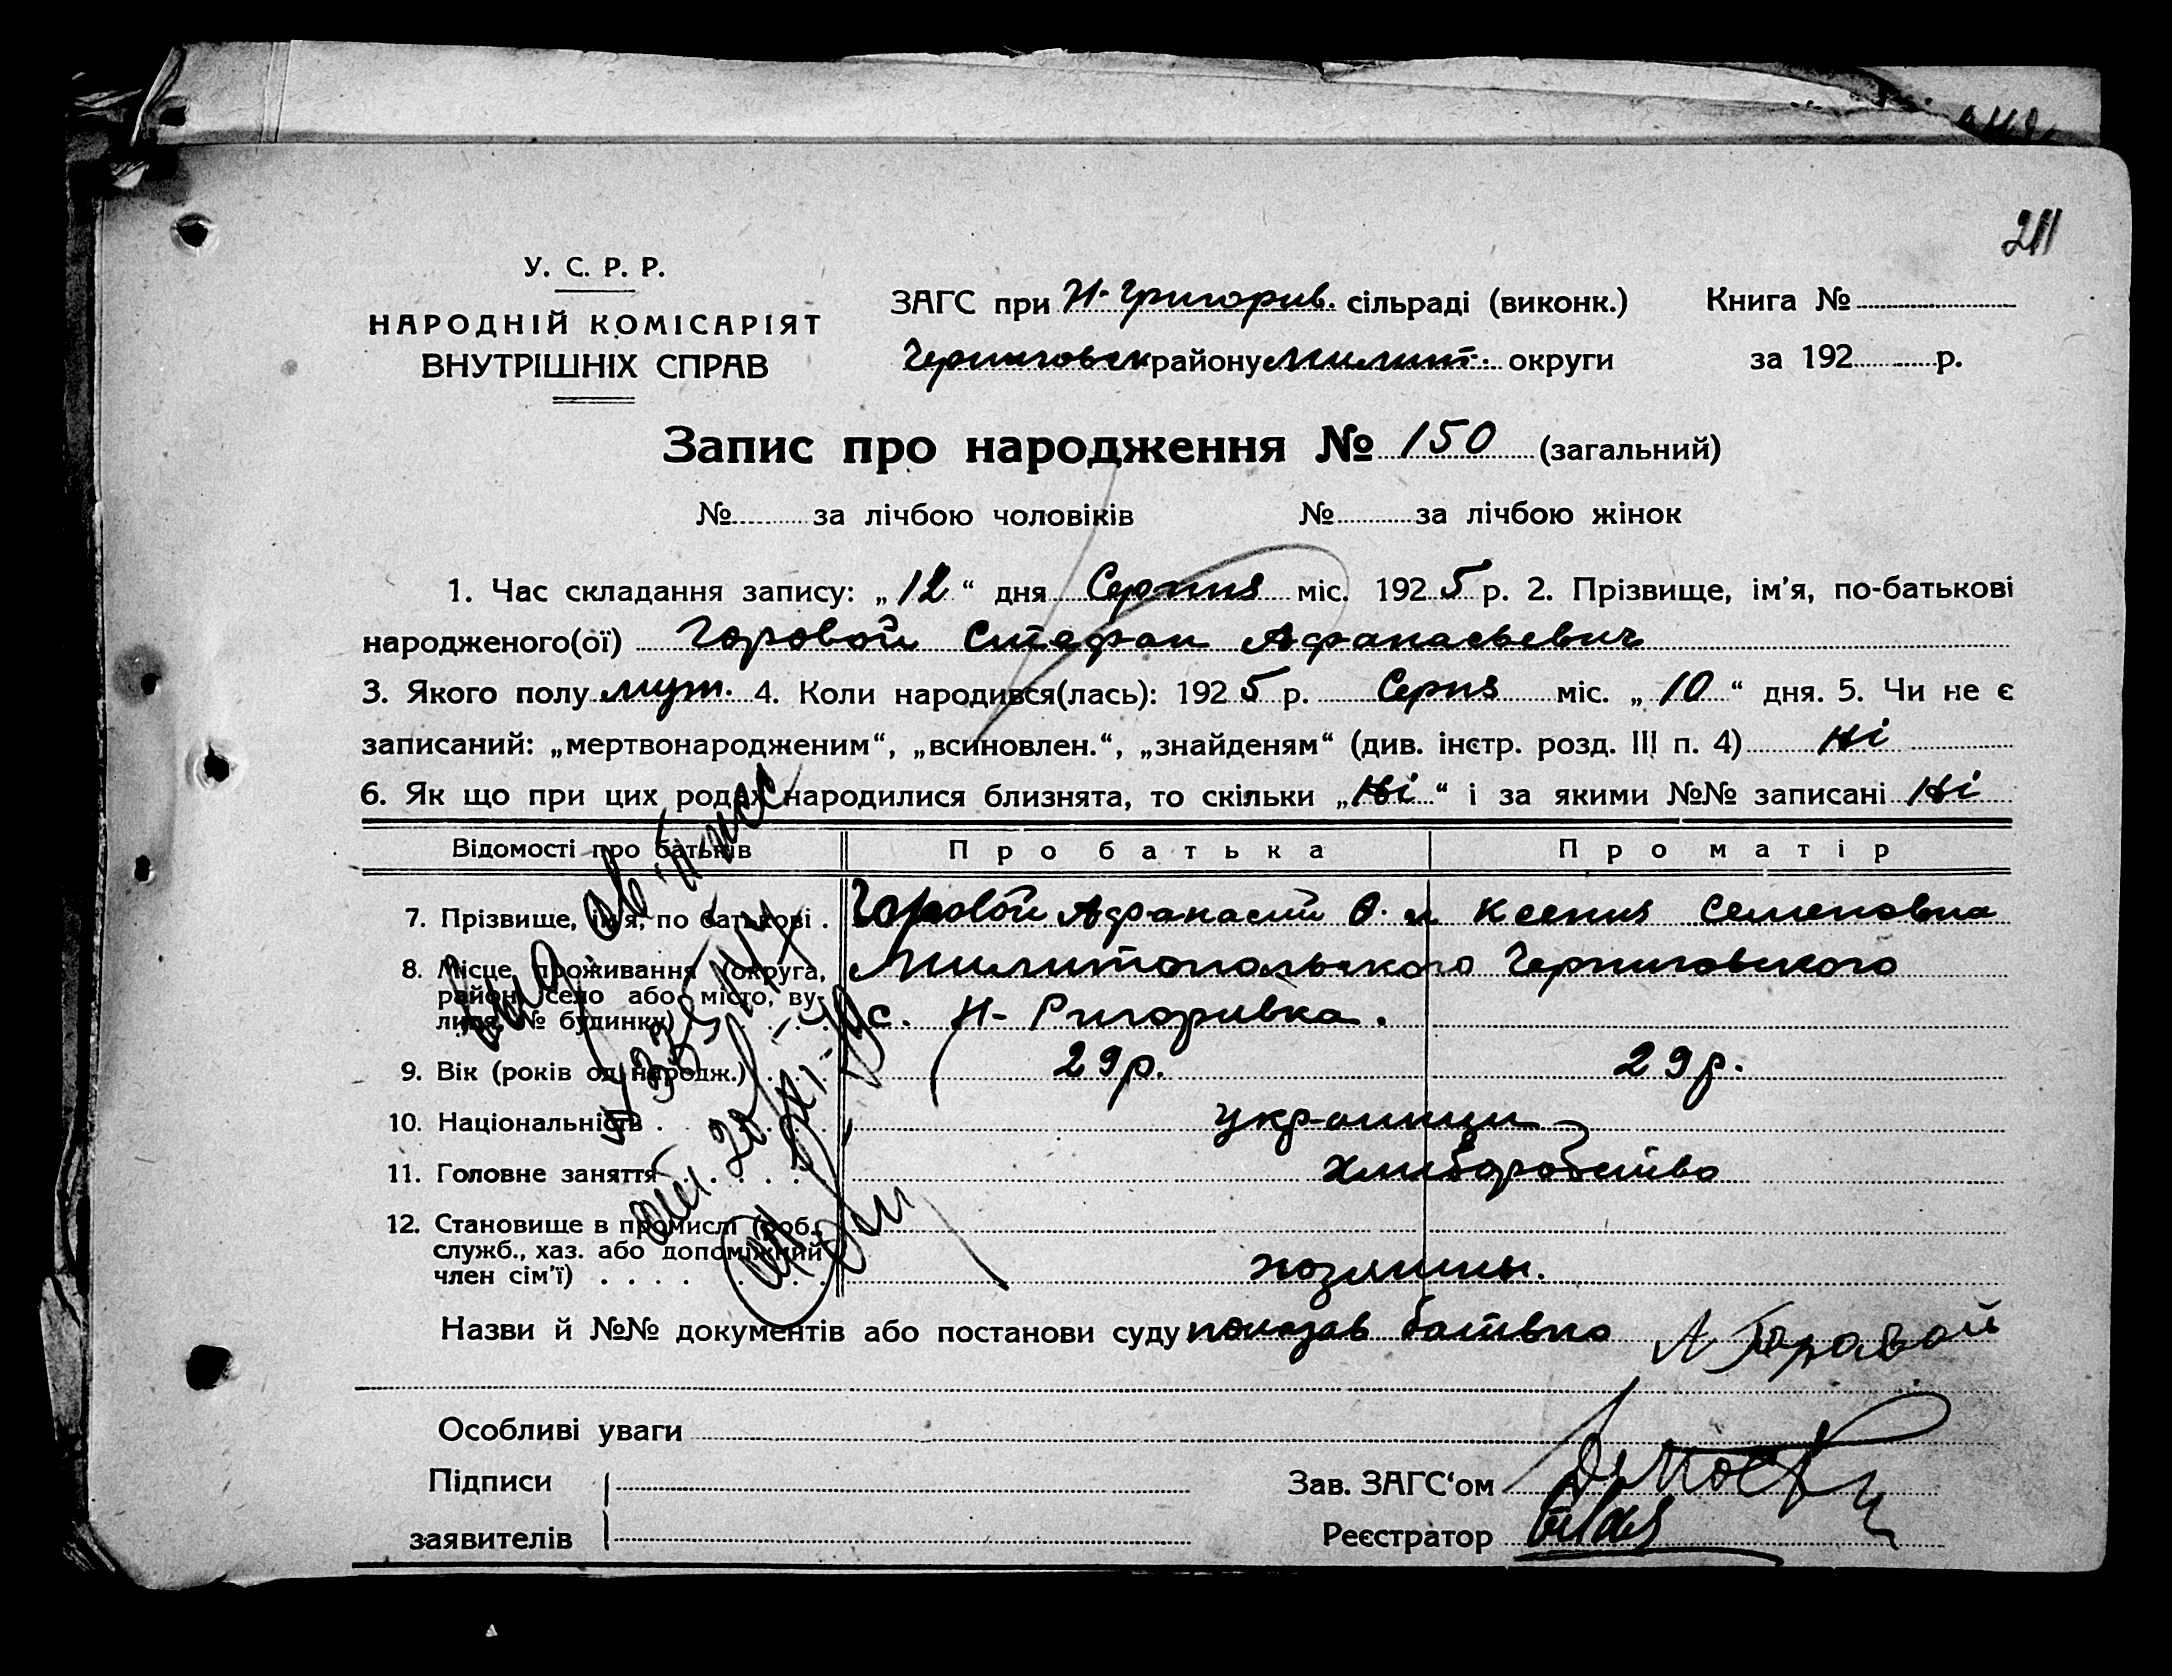 211
У. С. Р. Р.
НАРОДНІЙ КОМІСАРІЯТ
ВНУТРІШНІХ СПРАВ
ЗАГС при Н-Григорив. сільраді (виконк.) Книга №
Черниговск району Милит. округи за 192 р.
Запис про народження № 150 (загальний)
№ за лічбою чоловіків № за лічбою жінок
1. Час складання запису: „12“ дня Серпня міс. 1925 р. 2. Прізвище, ім'я, по-батькові
народженого(ої) Горовой Стефан Афанасьевич
3. Якого полу муж. 4. Коли народився(лась): 1925 р. Серпня міс. „10“ дня. 5. Чи не є
записаний: „мертвонародженим“, „всиновлен.“, „знайденям“ (див. інстр. розд. III п. 4) Ні
6. Як що при цих родах народилися близнята, то скільки „Ні“ і за якими №№ записані Ні
Відомості про батьків Про батька Про матір
7. Прізвище, ім'я, по батькові . Горовой Афанасий О. и Ксения Семеновна
8. Місце проживання (округа, Милитопольского Черниговского
район, село або місто, ву-
лиця, № будинку) с. Н-Ригоривка.
9. Вік (років од народж.) 29р. 29р.
10. Національність . украинци
11. Головне заняття . . . . . Хлиборобство
12. Становище в промислі (роб.,
служб., хаз. або допоміжний
член сім'ї) . . . . хозяины.
Назви й №№ документів або постанови суду показав батько А Горавой
Особливі уваги
Підписи Зав. ЗАГС'ом
заявителів Реєстратор